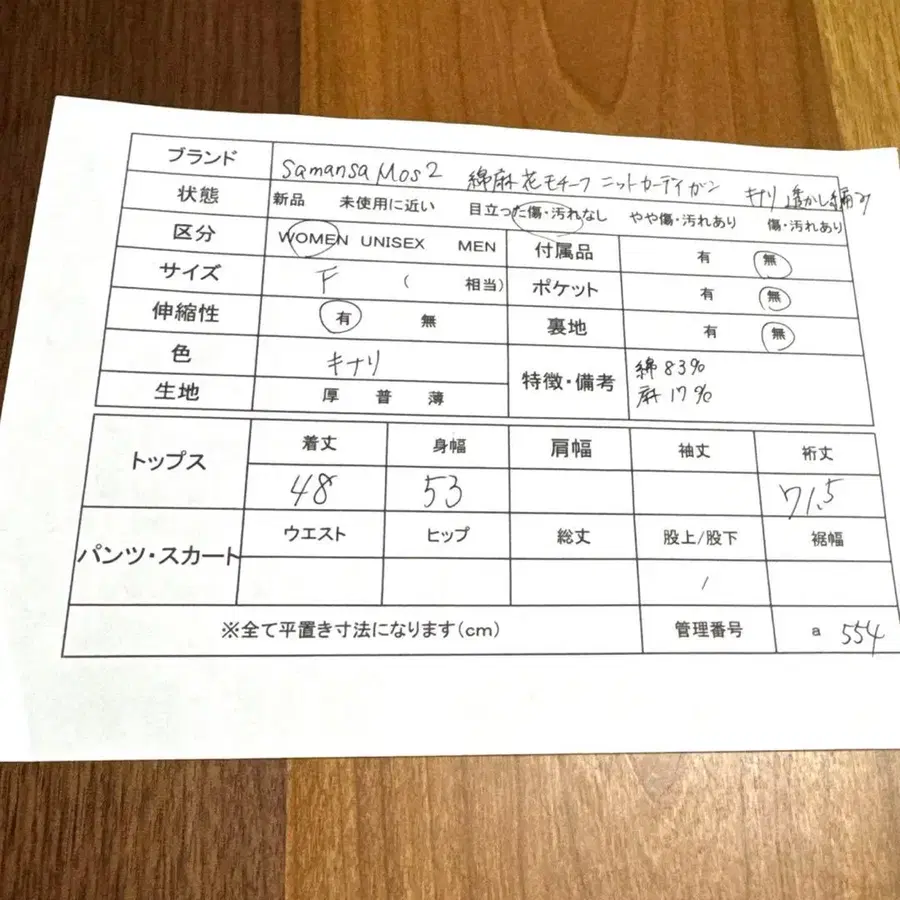 ブランド samansa Mos2 綿麻花モチーフ ニットカーディガン キナリ 透かし編み
状態 新品 未使用に近い 目立った傷・汚れなし やや傷・汚れあり 傷・汚れあり
区分 WOMEN UNISEX MEN 付属品 有 無
サイズ F ( 相当) ポケット 有 無
伸縮性 有 無 裏地 有 無
色 キナリ 特徴・備考 綿83%
麻17%
生地 厚 普 薄
トップス 着丈 身幅 肩幅 袖丈 裄丈
48 53 71.5
パンツ・スカート ウエスト ヒップ 総丈 股上/股下 裾幅
/
※全て平置き寸法になります(cm) 管理番号 a 554